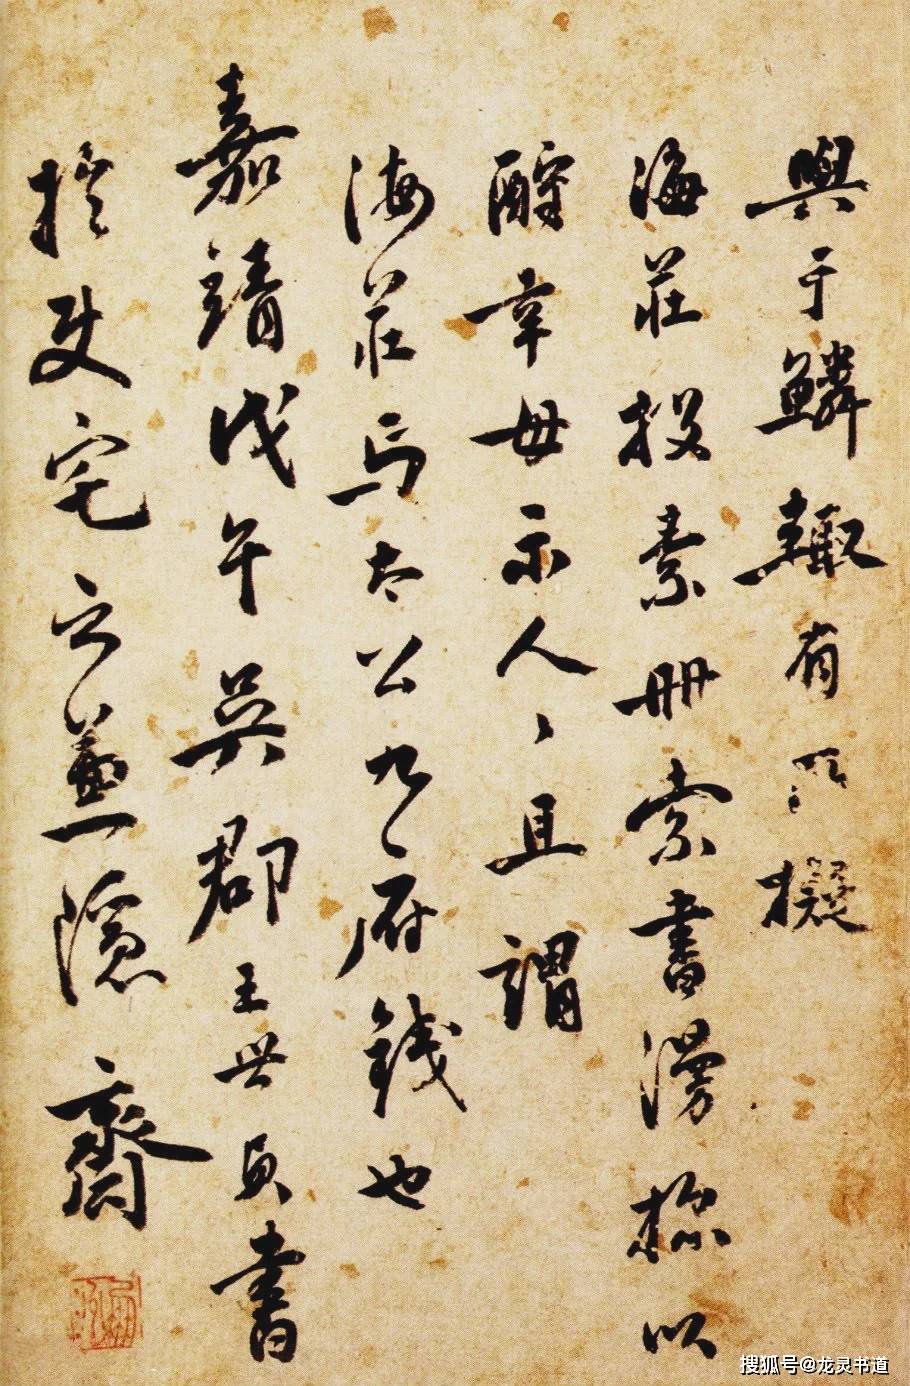 與于鱗輒有所擬
海莊投素册索書漫以
酬幸毋示人人且謂
海莊為太公九府錢也
嘉靖戊午吳郡王世貞書
於使宅之兼隱齋
搜狐号@龙灵书道